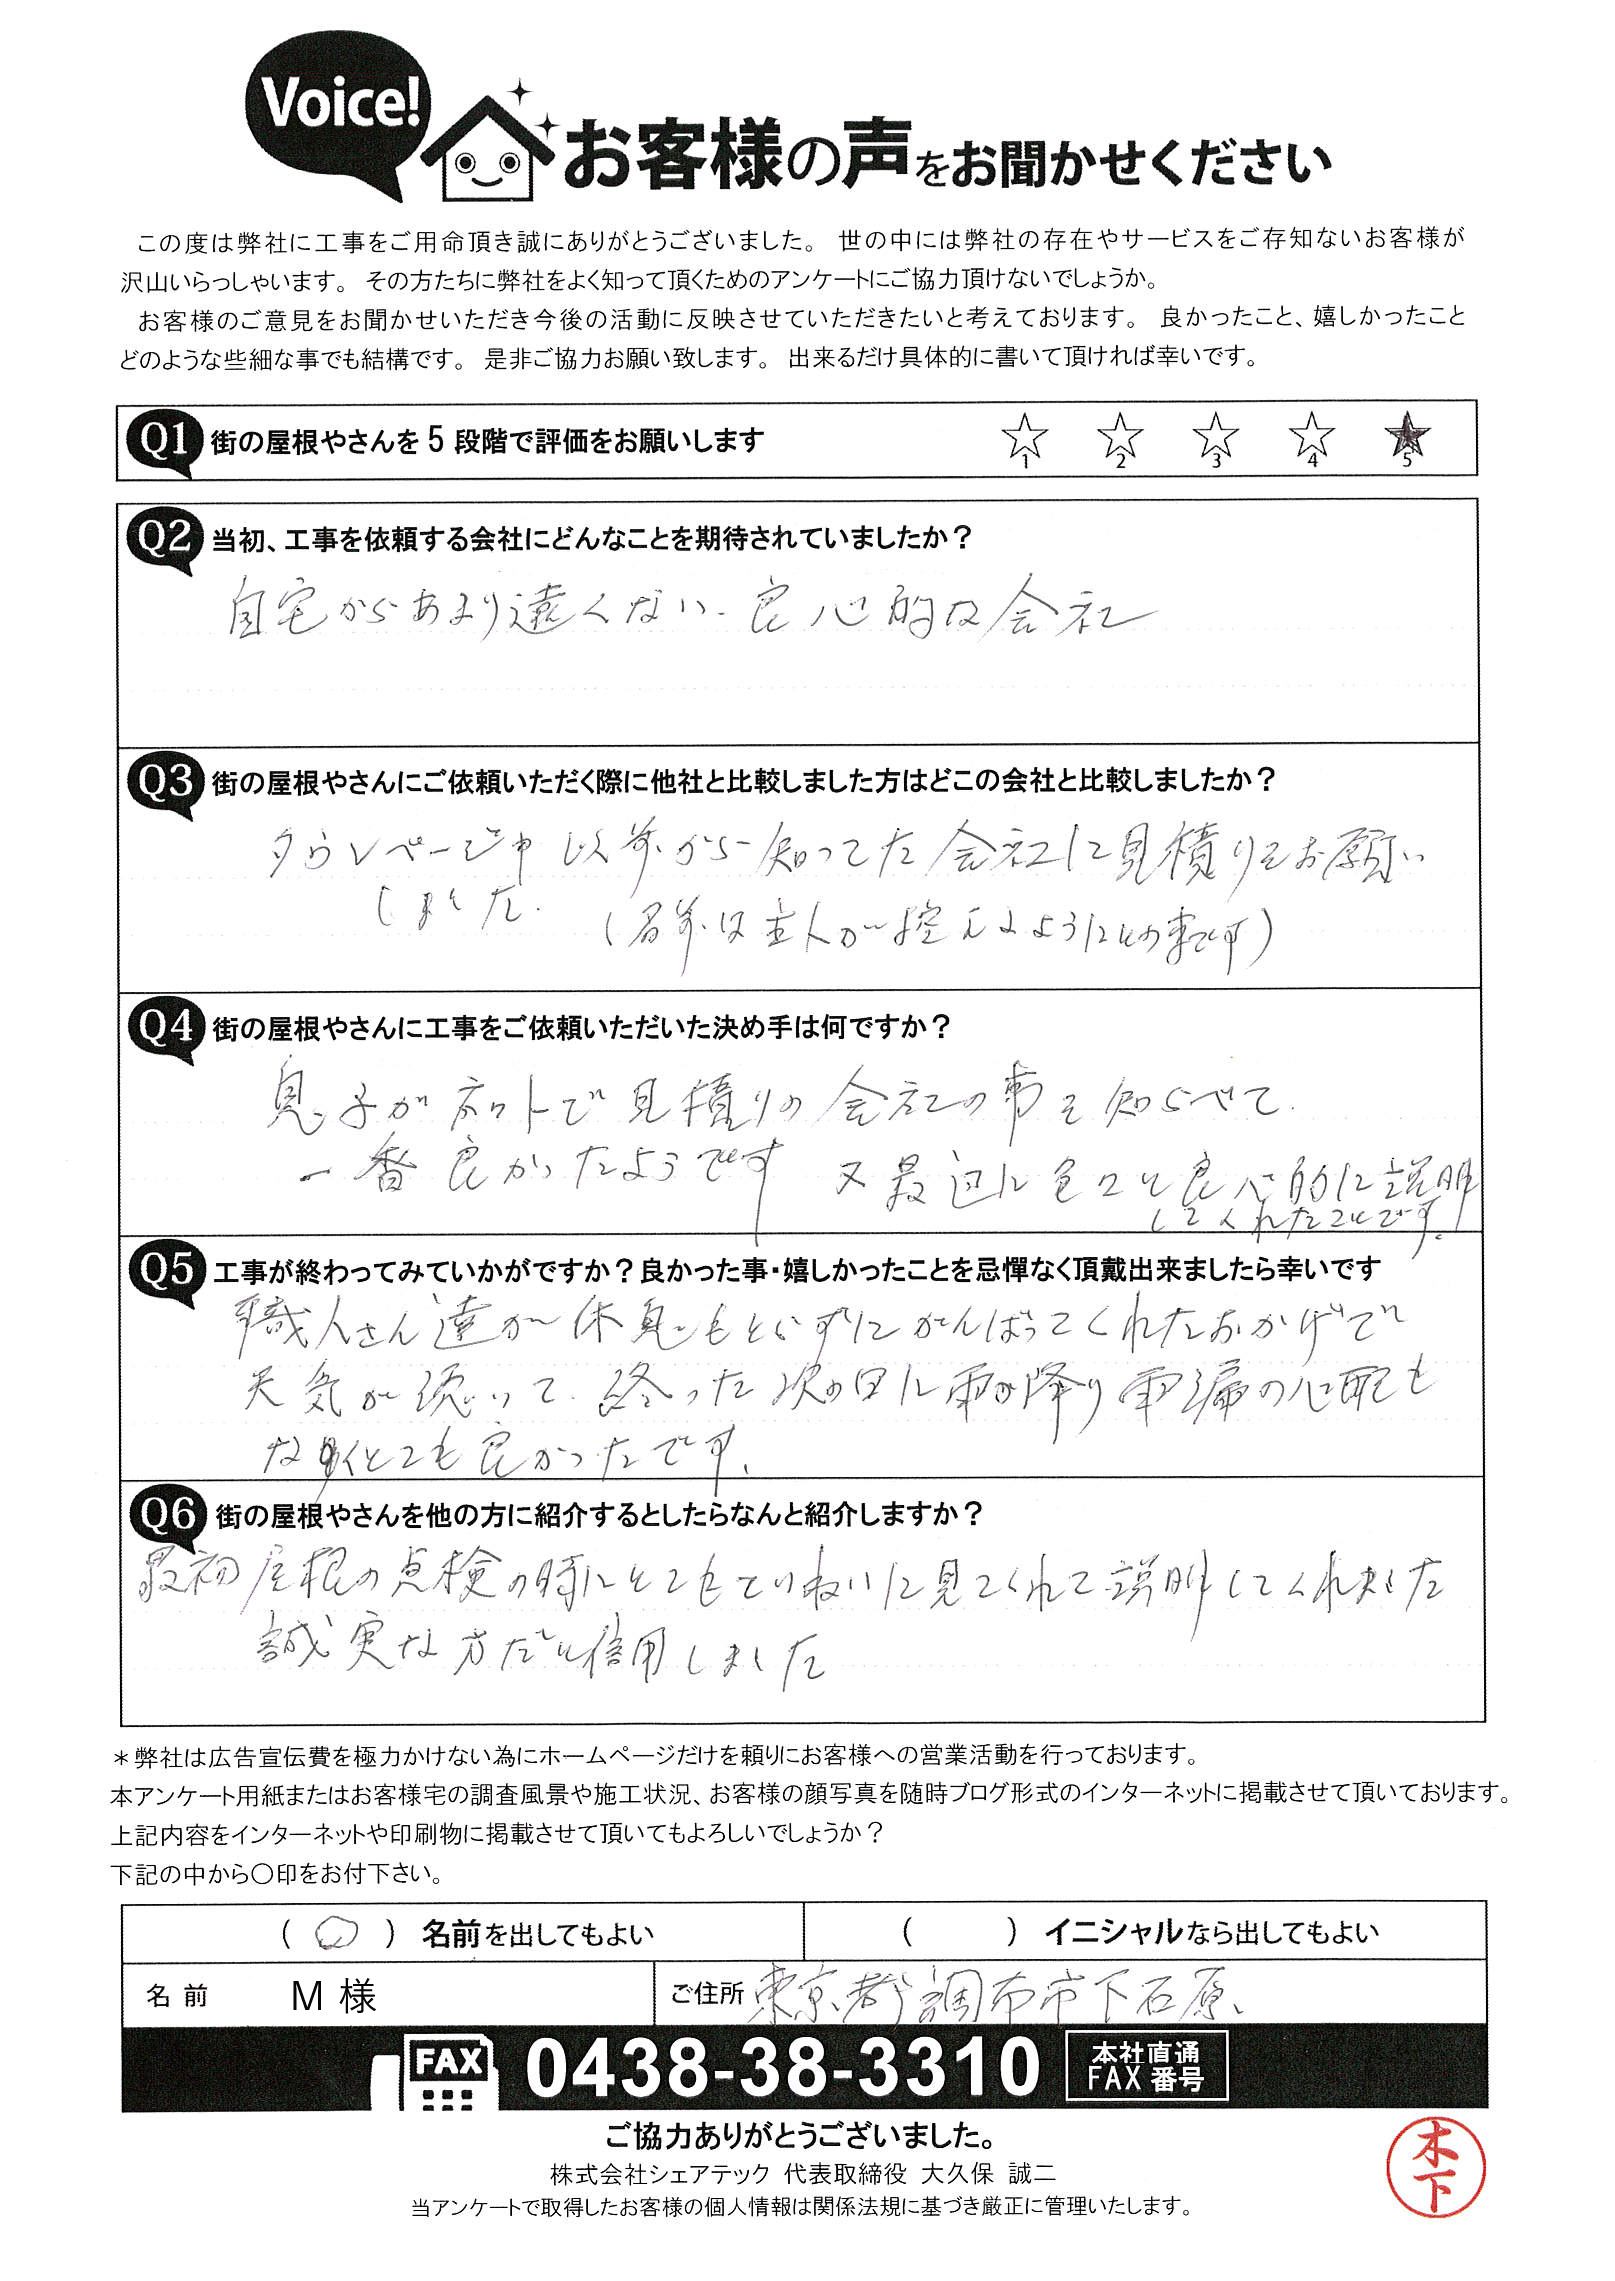 Voice!
お客様の声をお聞かせください
この度は弊社に工事をご用命頂き誠にありがとうございました。 世の中には弊社の存在やサービスをご存知ないお客様が
沢山いらっしゃいます。 その方たちに弊社をよく知って頂くためのアンケートにご協力頂けないでしょうか。
お客様のご意見をお聞かせいただき今後の活動に反映させていただきたいと考えております。 良かったこと、嬉しかったこと
どのような些細な事でも結構です。 是非ご協力お願い致します。 出来るだけ具体的に書いて頂ければ幸いです。
Q1 街の屋根やさんを 5 段階で評価をお願いします 1 2 3 4 5
Q2 当初、工事を依頼する会社にどんなことを期待されていましたか？
自宅からあまり遠くない、良心的な会社
Q3 街の屋根やさんにご依頼いただく際に他社と比較しました方はどこの会社と比較しましたか？
タウンページや 以前から知ってた会社に見積りをお願い
しました. (名前は主人が控えるようにとの事です)
Q4 街の屋根やさんに工事をご依頼いただいた決め手は何ですか？
息子がネットで見積りの会社の事を知らべて.
一番良かったようです 又最初に色々と良心的に説明
してくれたことです.
Q5 工事が終わってみていかがですか？良かった事・嬉しかったことを忌憚なく頂戴出来ましたら幸いです
職人さん達が休息もとらずにがんばってくれたおかげで
天気が続いて、終った次の日に雨が降り雨漏の心配も
なくとても良かったです.
Q6 街の屋根やさんを他の方に紹介するとしたらなんと紹介しますか？
最初屋根の点検の時にとてもていねいに見てくれて説明してくれました
誠実な方だと信用しました
＊弊社は広告宣伝費を極力かけない為にホームページだけを頼りにお客様への営業活動を行っております。
本アンケート用紙またはお客様宅の調査風景や施工状況、お客様の顔写真を随時ブログ形式のインターネットに掲載させて頂いております。
上記内容をインターネットや印刷物に掲載させて頂いてもよろしいでしょうか？
下記の中から〇印をお付下さい。
( 〇 ) 名前を出してもよい ( ) イニシャルなら出してもよい
名 前 M 様 ご住所 東京都調布市下石原、
FAX 0438-38-3310 本社直通
FAX 番号
ご協力ありがとうございました。
株式会社シェアテック 代表取締役 大久保 誠二
当アンケートで取得したお客様の個人情報は関係法規に基づき厳正に管理いたします。
木下